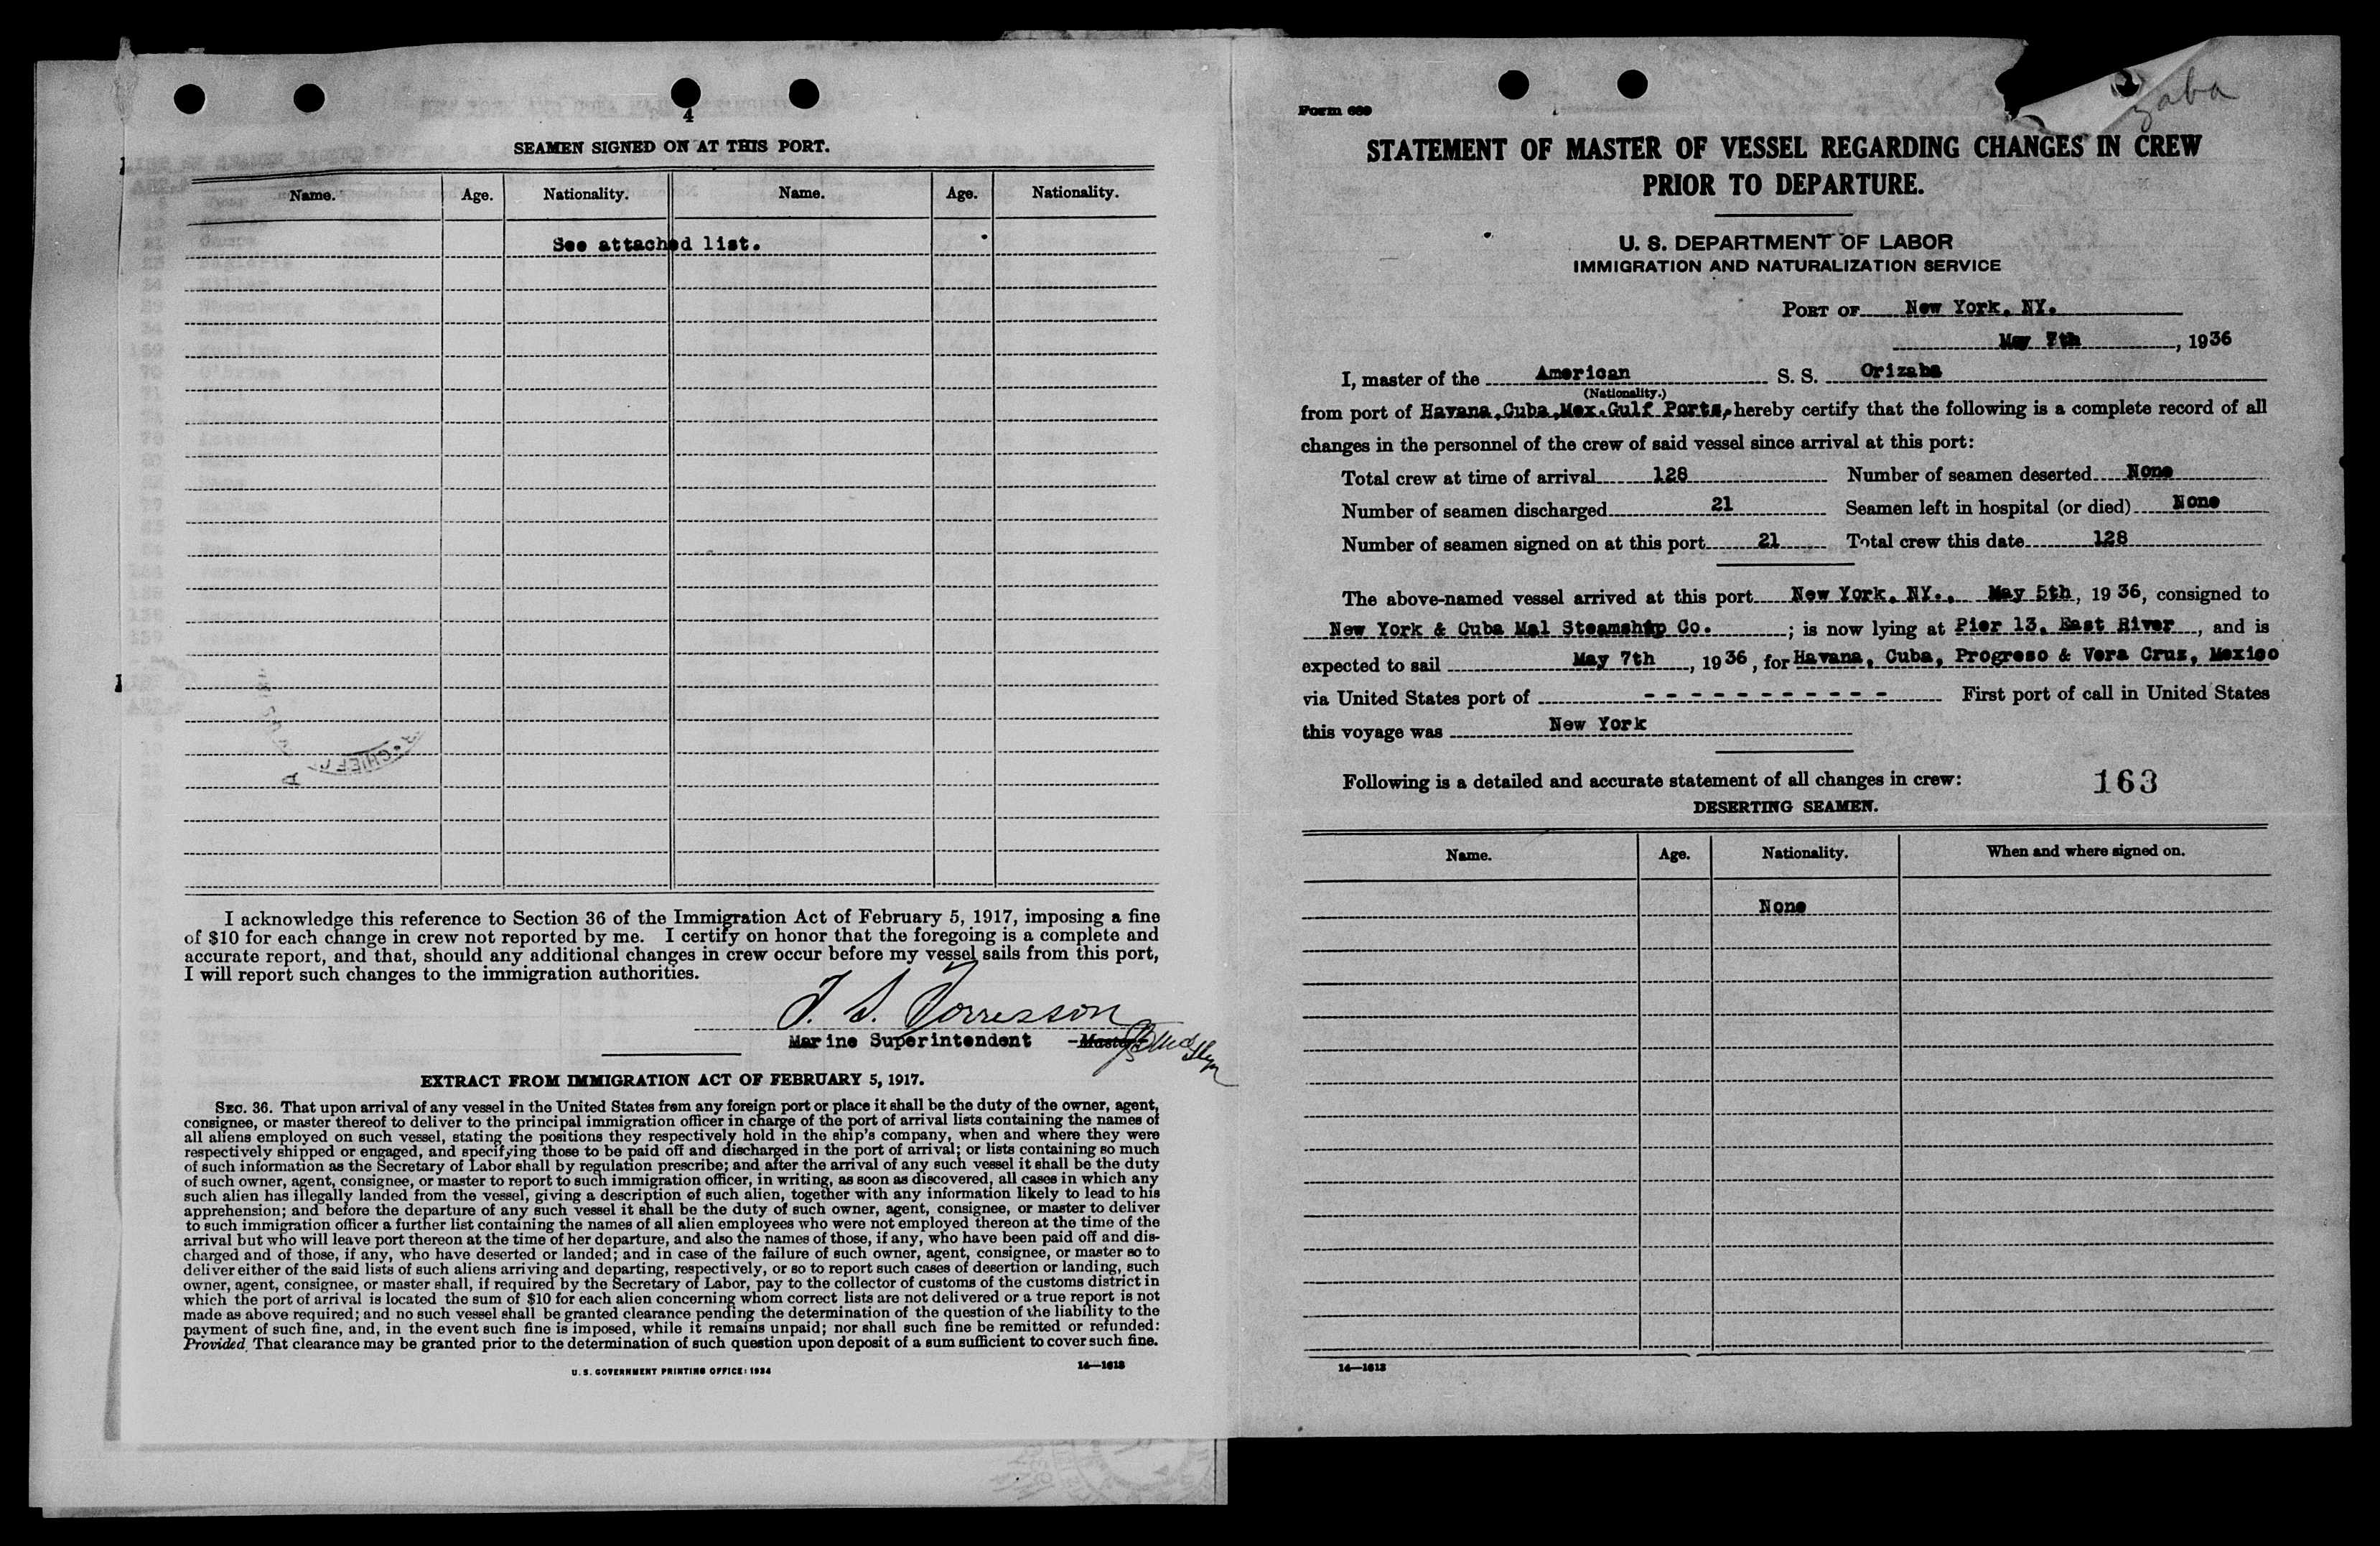 4
SEAMEN SIGNED ON AT THIS PORT.
Name. Age. Nationality. Name. Age. Nationality.
See attached list.
I acknowledge this reference to Section 36 of the Immigration Act of February 5, 1917, imposing a fine
of $10 for each change in crew not reported by me. I certify on honor that the foregoing is a complete and
accurate report, and that, should any additional changes in crew occur before my vessel sails from this port,
I will report such changes to the immigration authorities.
T. S. Torresson
Marine Superintendent Master.
EXTRACT FROM IMMIGRATION ACT OF FEBRUARY 5, 1917.
SEC. 36. That upon arrival of any vessel in the United States from any foreign port or place it shall be the duty of the owner, agent,
consignee, or master thereof to deliver to the principal immigration officer in charge of the port of arrival lists containing the names of
all aliens employed on such vessel, stating the positions they respectively hold in the ship's company, when and where they were
respectively shipped or engaged, and specifying those to be paid off and discharged in the port of arrival; or lists containing so much
of such information as the Secretary of Labor shall by regulation prescribe; and after the arrival of any such vessel it shall be the duty
of such owner, agent, consignee, or master to report to such immigration officer, in writing, as soon as discovered, all cases in which any
such alien has illegally landed from the vessel, giving a description of such alien, together with any information likely to lead to his
apprehension; and before the departure of any such vessel it shall be the duty of such owner, agent, consignee, or master to deliver
to such immigration officer a further list containing the names of all alien employees who were not employed thereon at the time of the
arrival but who will leave port thereon at the time of her departure, and also the names of those, if any, who have been paid off and dis-
charged and of those, if any, who have deserted or landed; and in case of the failure of such owner, agent, consignee, or master so to
deliver either of the said lists of such aliens arriving and departing, respectively, or so to report such cases of desertion or landing, such
owner, agent, consignee, or master shall, if required by the Secretary of Labor, pay to the collector of customs of the customs district in
which the port of arrival is located the sum of $10 for each alien concerning whom correct lists are not delivered or a true report is not
made as above required; and no such vessel shall be granted clearance pending the determination of the question of the liability to the
payment of such fine, and, in the event such fine is imposed, while it remains unpaid; nor shall such fine be remitted or refunded:
Provided, That clearance may be granted prior to the determination of such question upon deposit of a sum sufficient to cover such fine.
U. S. GOVERNMENT PRINTING OFFICE: 1934 14—1613
zaba
Form 689
STATEMENT OF MASTER OF VESSEL REGARDING CHANGES IN CREW
PRIOR TO DEPARTURE.
U. S. DEPARTMENT OF LABOR
IMMIGRATION AND NATURALIZATION SERVICE
PORT OF New York, NY.
May 7th, 1936
I, master of the American S. S. Orizaba
(Nationality.)
from port of Havana,Cuba,Mex.Gulf Ports, hereby certify that the following is a complete record of all
changes in the personnel of the crew of said vessel since arrival at this port:
Total crew at time of arrival 128 Number of seamen deserted None
Number of seamen discharged 21 Seamen left in hospital (or died) None
Number of seamen signed on at this port 21 Total crew this date 128
The above-named vessel arrived at this port New York, NY., May 5th, 1936, consigned to
New York & Cuba Mal Steamship Co. ; is now lying at Pier 13, East River, and is
expected to sail May 7th, 1936, for Havana, Cuba, Progreso & Vera Cruz, Mexico
via United States port of - - - - - - - - - - - - First port of call in United States
this voyage was New York
Following is a detailed and accurate statement of all changes in crew: 163
DESERTING SEAMEN.
Name. Age. Nationality. When and where signed on.
None
14—1613